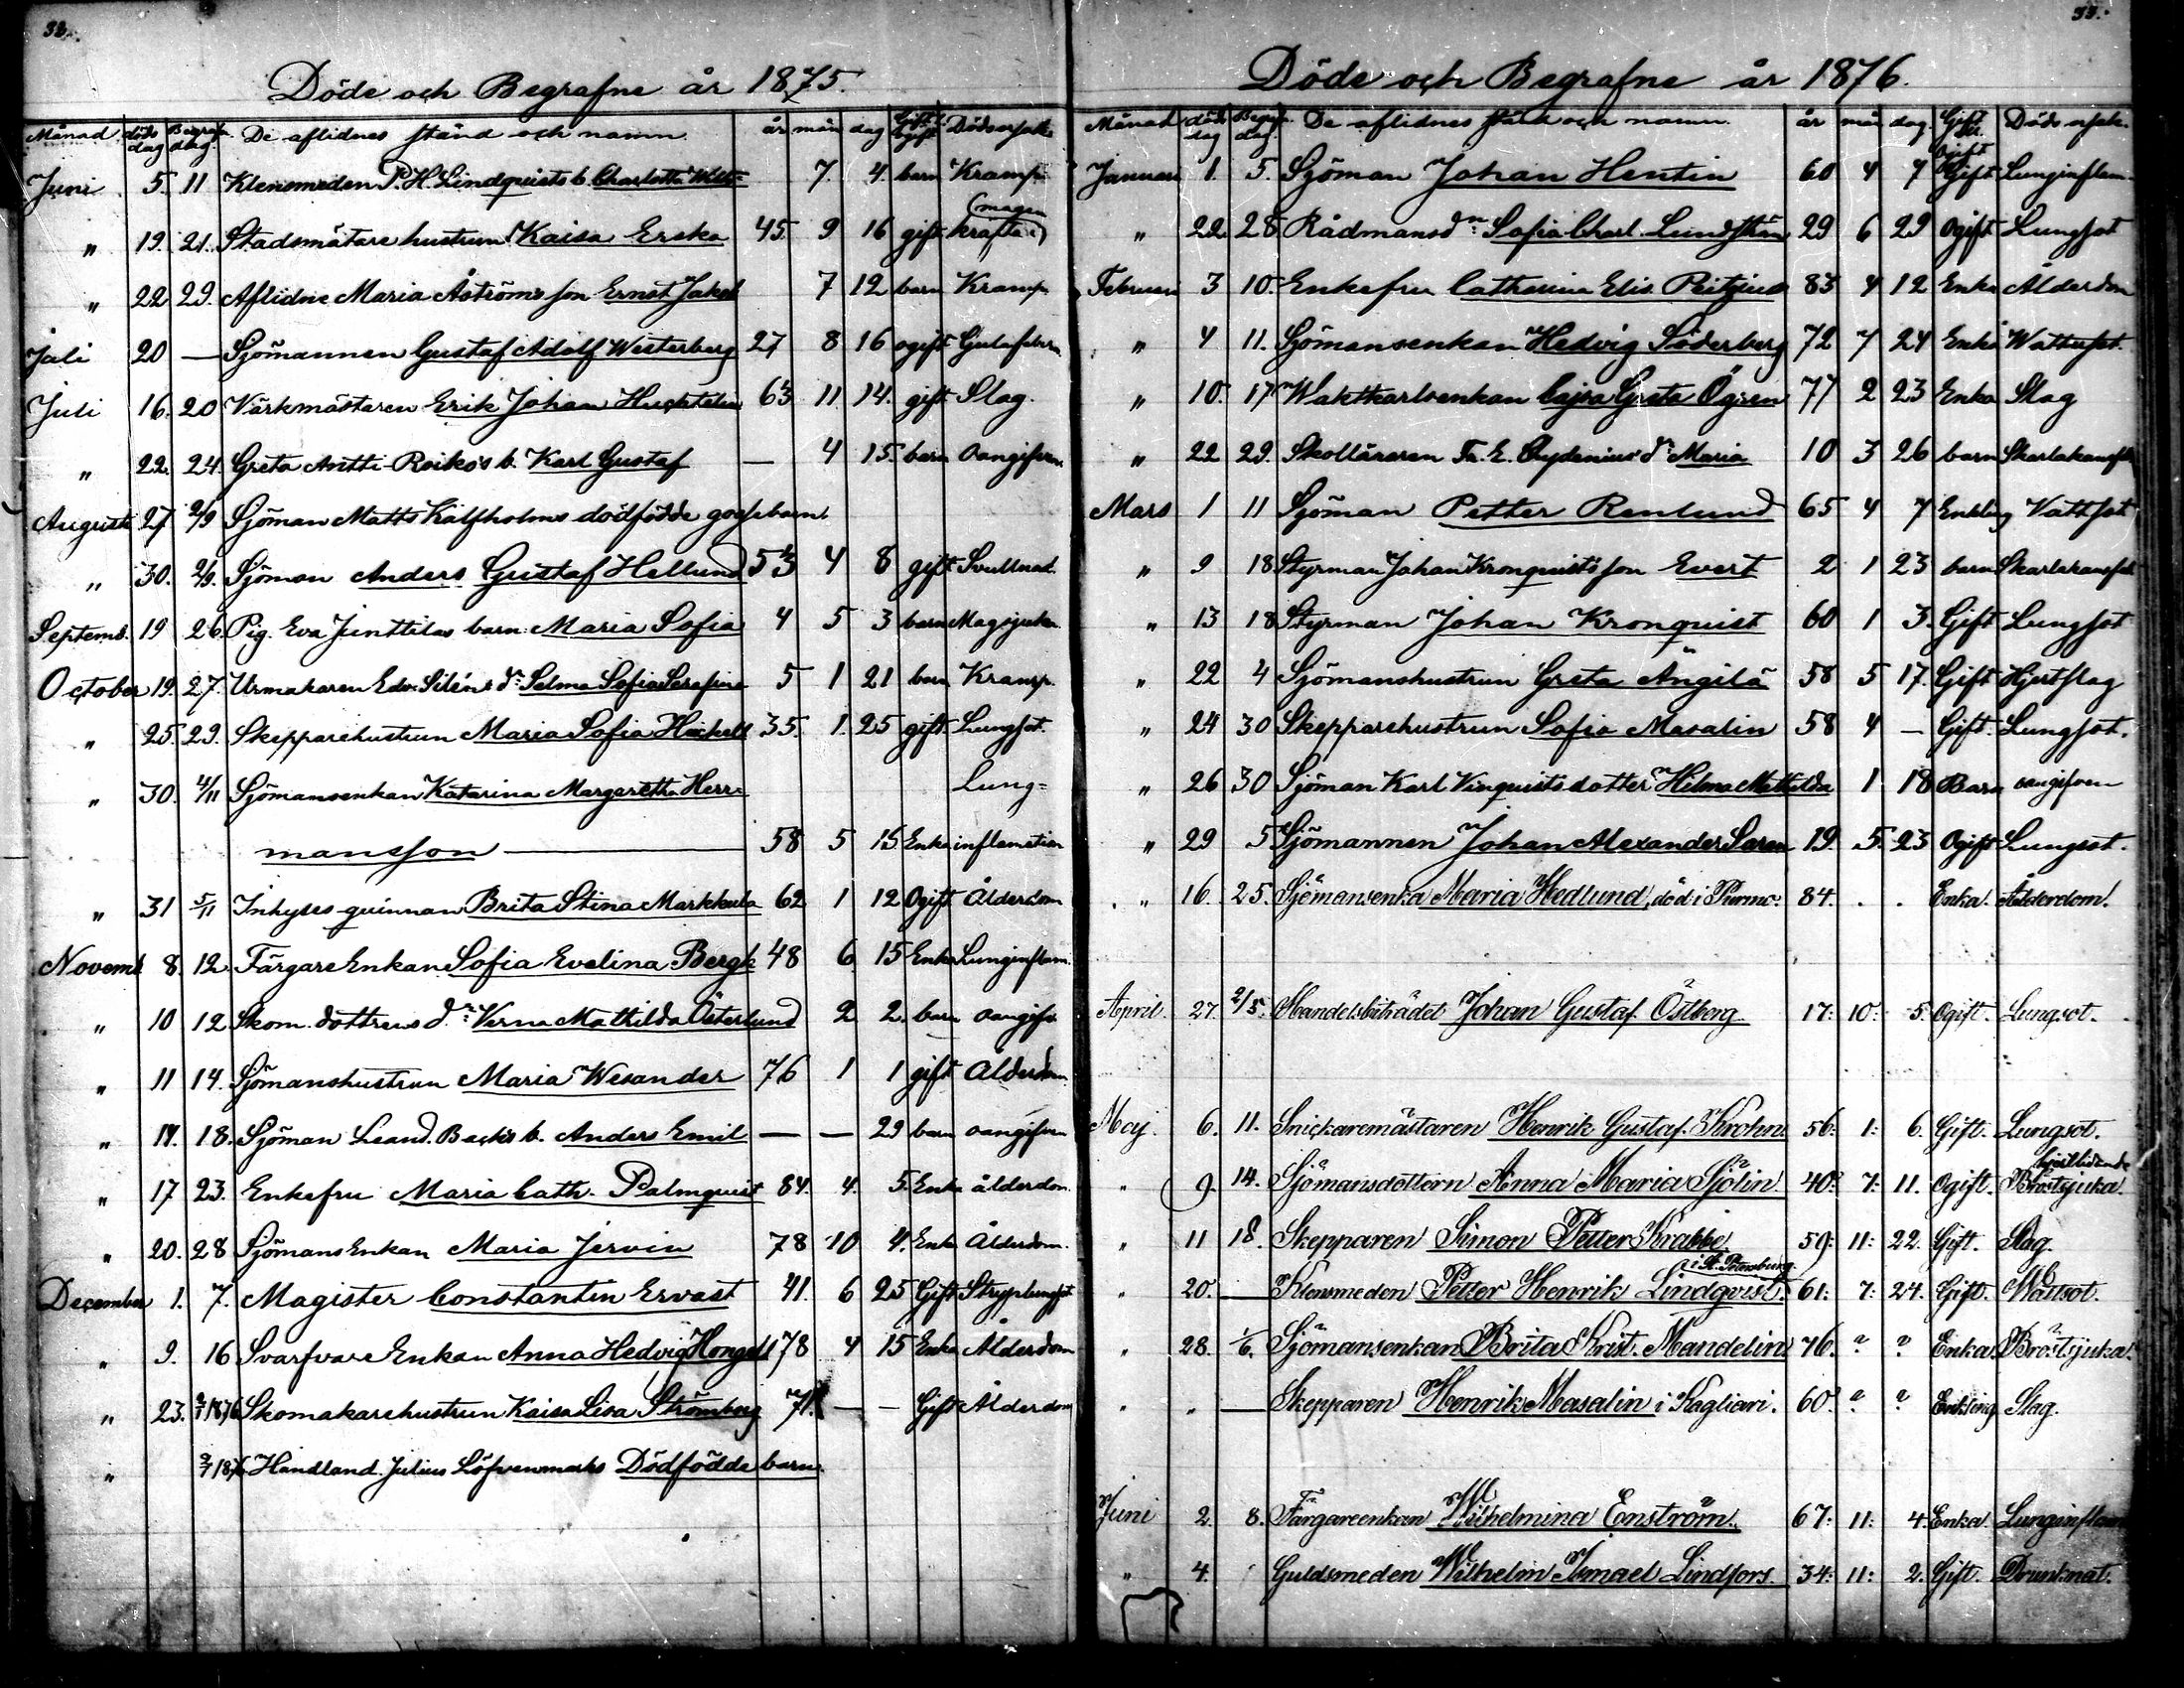 Döde och Begrafne år 1875.
Månad döds dag Begrafn. dag De aflidnes stånd och namn. år mån dag Gift Ogift Dödsorsak
Juni 5. 11 Klensmeden P. H. Lindquists b. Charlotta 7. 4. barn Kramp
" 19. 21. Stadsmätare hustrun Kaisa Erska 45. 9 16 gift kräfta (magen)
" 22 29. Aflidne Maria Åströms son Ernst Jakob 7 12 barn Kramp
Juli 20 — Sjömannen Gustaf Adolf Westerberg 27 8 16 ogift Gulafebern
Juli 16. 20 Värkmästaren Erik Johan 63 11 14. gift Slag.
" 22. 24. Greta Antti-Roikos b. Karl Gustaf — 4 15. barn oangifven
Augusti 27 2/9 Sjöman Matts Kälfholms dödfödde gossebarn
" 30. 2/9. Sjöman Anders Gustaf Hellund 53 4 8 gift Svullnad.
Septemb. 19 26. Pig. Eva Junttilas barn Maria Sofia 4 5 3 barn Magsjuka
October 19. 27. Urmakaren Edv. Siléns dr Selma Sofia Serafina 5 1 21 barn Kramp.
" 25. 29. Skepparehustrun Maria Sofia Häckell 35. 1. 25 gift Lungsot.
" 30. 4/11 Sjömansenkan Katarina Margaretha Herr- Lung=
mansson 58 5 15 Enka inflamation
" 31 5/11 Inhyses-quinnan Brita Stina Markkula 62 1 12 Ogift Ålderdom
Novemb. 8. 12. Färgare Enkan Sofia Evelina Bergh 48 6 15 Enka Lunginflam.
" 10 12 Skom. dottrens dr Verna Mathilda Österlund 2 2. barn oangifv.
" 11 14. Sjömanshustrun Maria Wesander 76 1 1 gift Ålderdom
" 14. 18. Sjöman Leand. Backs b. Anders Emil — — 29 barn oangifven
" 17 23. Enkefru Maria Cath. Palmquist 84. 4. 5. Enka ålderdom.
" 20. 28 Sjömans Enkan Maria Jervin 78 10 4. Enk Ålderdom.
December 1. 7. Magister Constantin Ervast 41. 6 25 Gift Stryplungsot
" 9. 16 Svarfvare Enkan Anna Hedvig Hongell 78 4 15 Enka Ålderdom
" 23. 2/1 1876 Skomakarehustrun Kaisa Lisa Strömberg 71. — — Gift Ålderdom
" 2/1 1876 Handland. Julius Löfvenmarks Dödfödde barn.
33.
Döde och Begrafne år 1876.
Månad döds dag Begrafn. dag. De aflidnes stånd och namn. år mån dag. Gift el. Ogift Döds orsak.
Januari 1. 5. Sjöman Johan Hentin 60 4 7 Gift Lunginflam.
" 22. 28 Rådmans dn Sofia Charl. Lundstén 29 6 29 Ogift Lungsot
Februari 3 10. Enkefru Catharina Elis. Peitzius 83 4 12 Enka Ålderdom
" 4 11. Sjömansenkan Hedvig Söderberg 72 7 24 Enka Wattusot.
" 10. 17 Waktkarlsenkan Cajsa Greta Ögren 77 2 23 Enka Slag
" 22 29. Skolläraren Fr. E. Chydenius' dr Maria 10 3 26 barn Skarlakansfeb.
Mars 1 11 Sjöman Petter Renlund 65 4 7 Enkling Vattsot
" 9 18 Styrman Johan Kronquists son Evert 2 1 23 barn Skarlakansfeb.
" 13 18 Styrman Johan Kronquist 60 1 3. Gift Lungsot
" 22 4 Sjömanshustrun Greta Ängilä 58 5 17. Gift Hjertslag
" 24 30 Skepparehustrun Sofia Masalin 58 4 — Gift. Lungsot.
" 26 30 Sjöman Karl Vinquists dotter Hilma Mathilda 1 18 Barn oangifven
" 29 5 Sjömannen Johan Alexander Saren 19. 5. 23 Ogift Lungsot.
" 16. 25. Sjömansenka Maria Hedlund, död i Purmo. 84. . . Enka. Ålderdom.
April. 27. 2/5. Handelsbiträdet Johan Gustaf Östberg. 17: 10: 5. Ogift. Lungsot.
Maj. 6. 11. Snickaremästaren Henrik Gustaf Krohn. 56: 1: 6. Gift. Lungsot.
" 9. 14. Sjömansdottern Anna Maria Sjölin. 40: 7: 11. Ogift. Bröstsjuka. hjertlidande
" 11 18. Skepparen Simon Petter Krabbe 59: 11: 22. Gift. Slag.
" 20. — Klensmeden Petter Henrik Lindqvist i St. Petersburg. 61: 7: 24. Gift. Wattsot.
" 28. 1/6. Sjömansenkan Brita Krist. Mandelin 76. ? ? Enka. Bröstsjuka.
" " — Skepparen Henrik Masalin i Kagliari. 60. ? ? Enkling Slag.
Juni 2. 8. Färgareenkan Wilhelmina Enström. 67: 11: 4. Enka. Lunginflam
" 4. Guldsmeden Wilhelm Ismael Lindfors. 34: 11: 2. Gift. Drunknat.